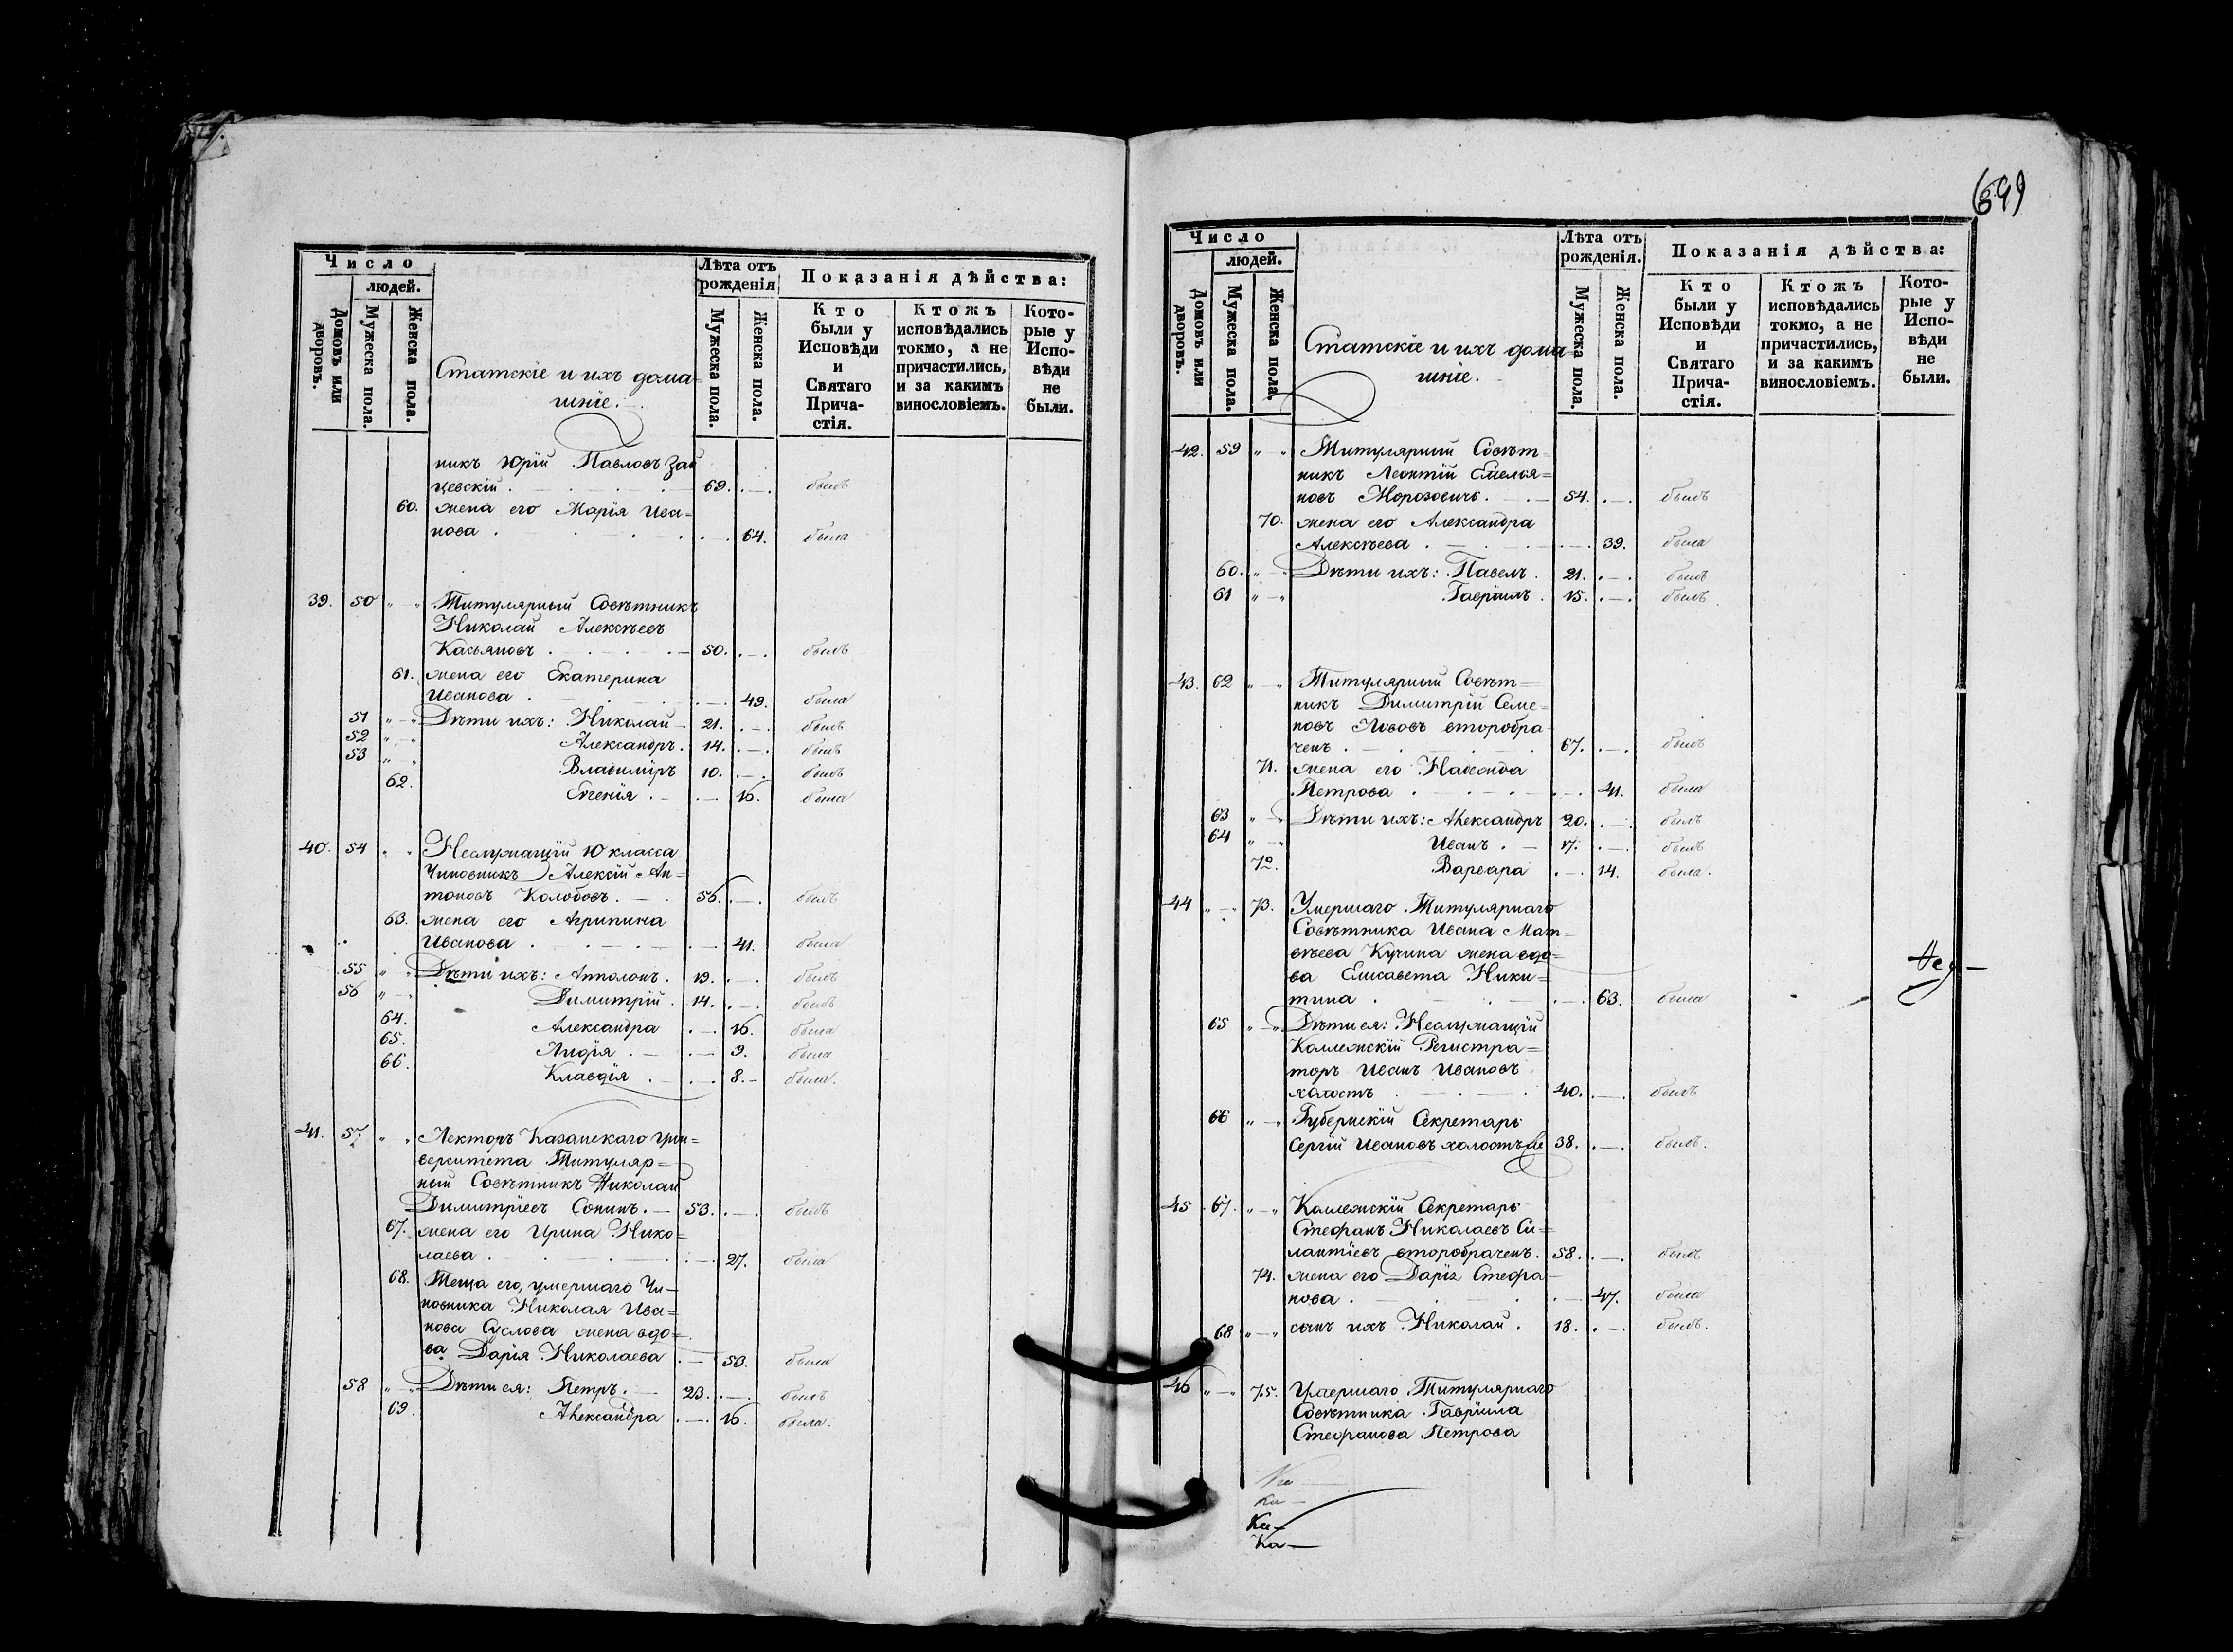 699
Число
людей.
Домовъ или дворовъ.
Мужеска пола.
Женска пола.
Статскіе и ихъ дома=
шніе.
Лѣта отъ
рожденія
Мужеска пола.
Женска пола.
Показанія дѣйства:
Кто
были у
Исповѣди
и
Святаго
Прича-
стія.
Ктожъ
исповѣдались
токмо, а не
причастились,
и за какимъ
винословіемъ.
Кото-
рые у
Испо-
вѣди
не
были.
никъ Юрій Павловъ Зай
цевскій . — 69. . — . былъ
60. жена его Марія Ива=
нова . . — . 64. была
39. 50 „ „ Титулярный Совѣтникъ
Николай Алексѣевъ
Касьяновъ . — 50. . — . былъ
61. жена его Екатерина
Иванова . . — . 49. была
51 „ — „ Дѣти ихъ: Николай — 21. . — . былъ
52 „ — „ Александръ . 14. . — . былъ
53 „ — „ Владиміръ 10. . — . былъ
62. Евгенія . — . — . 16. была
40. 54 „ „ Неслужащій 10 класса
Чиновникъ Алексій Ан=
тоновъ Колобовъ . — . 56. . — . былъ
63. жена его Агрипина
Иванова . . — . 41. была
55 „ „ Дѣти ихъ: Апполонъ . 19. . — . былъ
56 „ — „ Димитрій . 14. . — . былъ
64. Александра . — . 16. была
65. Лидія . — . — . 9. была
66. Клавдія . — . — . 8. — была.
41. 57. „ „ Лекторъ Казанскаго Уни=
верситета Титуляр=
ный Совѣтникъ Николай
Димитріевъ Сонинъ . — 53. . — . былъ
67. жена его Ирина Нико=
лаева . . — . 27. была
68. Теща его, умершаго Чи—
новника Николая Ива=
нова Суслова жена вдо=
ва Дарія Николаева . — 50. была
58 „ — „ Дѣти ея: Петръ . — 23. . — . былъ
69. Александра . — . 16. была.
Число
людей.
Домовъ или дворовъ.
Мужеска пола.
Женска пола.
Статскіе и ихъ дома=
шніе.
Лѣта отъ
рожденія.
Мужеска пола.
Женска пола.
Показанія дѣйства:
Кто
были у
Исповѣди
и
Святаго
Прича-
стія.
Ктожъ
исповѣдались
токмо, а не
причастились,
и за какимъ
винословіемъ.
Кото-
рые у
Испо-
вѣди
не
были.
42. 59 „ — „ Титулярный Совѣт=
никъ Леонтій Емелья=
новъ Морозовичъ . — 54. . — . былъ
70. жена его Александра
Алексѣева . . — . 39. была
60. „ — „ Дѣти ихъ: Павелъ . 21. . — . былъ
61 „ — „ Гавріилъ . 15. . — . былъ
43. 62 „ — „ Титулярный Совѣт=
никъ Димитрій Семе=
новъ Львовъ второбра
ченъ . — 67. . — . былъ
71. жена его Надежда
Петрова . . — . 41. была
63 „ — „ Дѣти ихъ: Александръ 20. . — . былъ
64 „ — „ Иванъ . — 17. . — . былъ
72. Варвара . — . 14. была.
44 „ — „ 73. Умершаго Титулярнаго
Совѣтника Ивана Мат=
вѣева Кучина жена вдо=
ва Елисавета Ники=
тина . . — . 63. была
65 „ — „ Дѣти ея: Неслужащій
Коллежскій Регистра=
торъ Иванъ Ивановъ
холостъ . 40. . — . былъ
66 „ — „ Губернскій Секретарь
Сергій Ивановъ холостъ 38. . — . былъ.
45 67. „ — „ Коллежскій Секретарь
Стефанъ Николаевъ Си=
лантіевъ второбраченъ . 58. . — . былъ
74. жена его Дарія Стефа—
нова . . — . 47. была
68 „ — „ сынъ ихъ Николай . 18. . — . былъ.
46 „ — „ 75. Умершаго Титулярнаго
Совѣтника Гавріила
Стефанова Петрова
Ка—